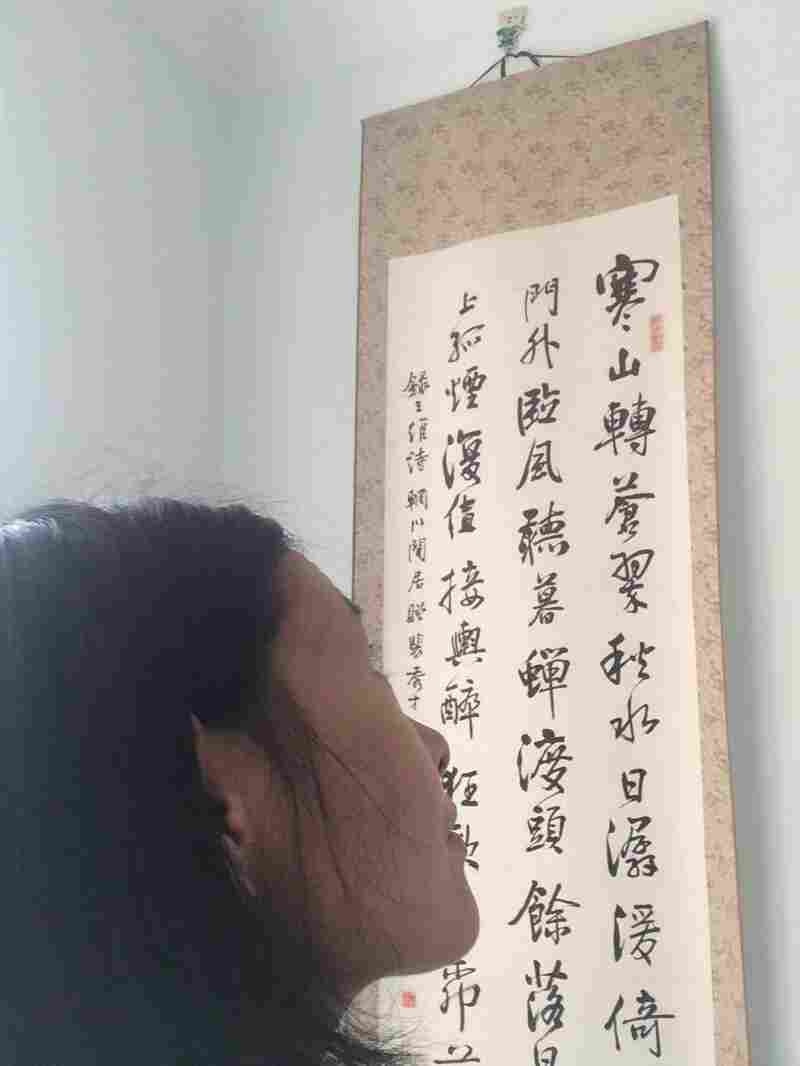 寒山轉蒼翠秋水日潺湲倚
門外臨風聽暮蟬渡頭餘落日
上孤煙復值接輿醉狂歌
錄王維詩輞川閑居贈裴秀才